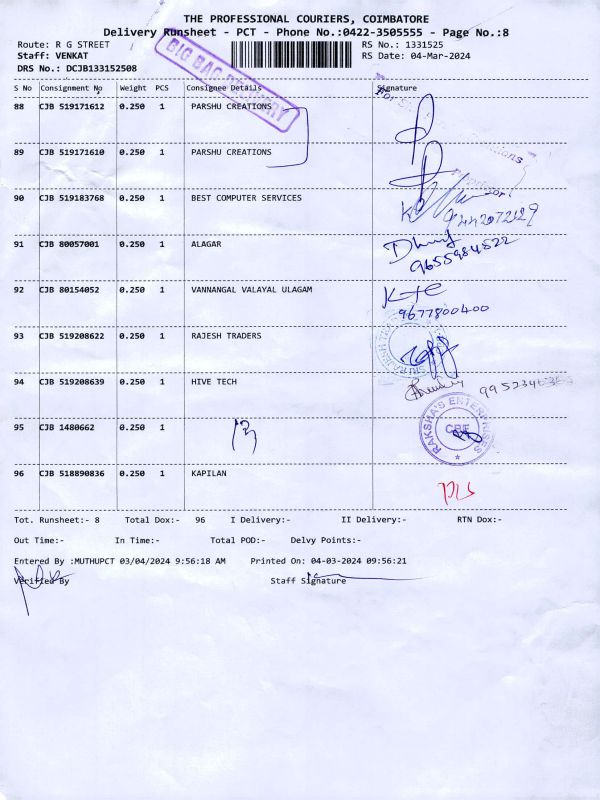 THE PROFESSIONAL COURIERS, COIMBATORE
Delivery Runsheet - PCT - Phone No.:0422-3505555 - Page No.:8
Route: R G STREET RS No.: 1331525
Staff: VENKAT RS Date: 04-Mar-2024
DRS No.: DCJB133152508
BIG BAG DELIVERY
S No Consignment No Weight PCS Consignee Details Signature
88 CJB 519171612 0.250 1 PARSHU CREATIONS
89 CJB 519171610 0.250 1 PARSHU CREATIONS
90 CJB 519183768 0.250 1 BEST COMPUTER SERVICES
9442072129
91 CJB 80057001 0.250 1 ALAGAR
9655984522
92 CJB 80154052 0.250 1 VANNANGAL VALAYAL ULAGAM
9677800400
93 CJB 519208622 0.250 1 RAJESH TRADERS
94 CJB 519208639 0.250 1 HIVE TECH
95 CJB 1480662 0.250 1
RAKSHA'S ENTERPRISES
CBE
96 CJB 518890836 0.250 1 KAPILAN
Tot. Runsheet:- 8 Total Dox:- 96 I Delivery:- II Delivery:- RTN Dox:-
Out Time:- In Time:- Total POD:- Delvy Points:-
Entered By :MUTHUPCT 03/04/2024 9:56:18 AM Printed On: 04-03-2024 09:56:21
Verified By Staff Signature